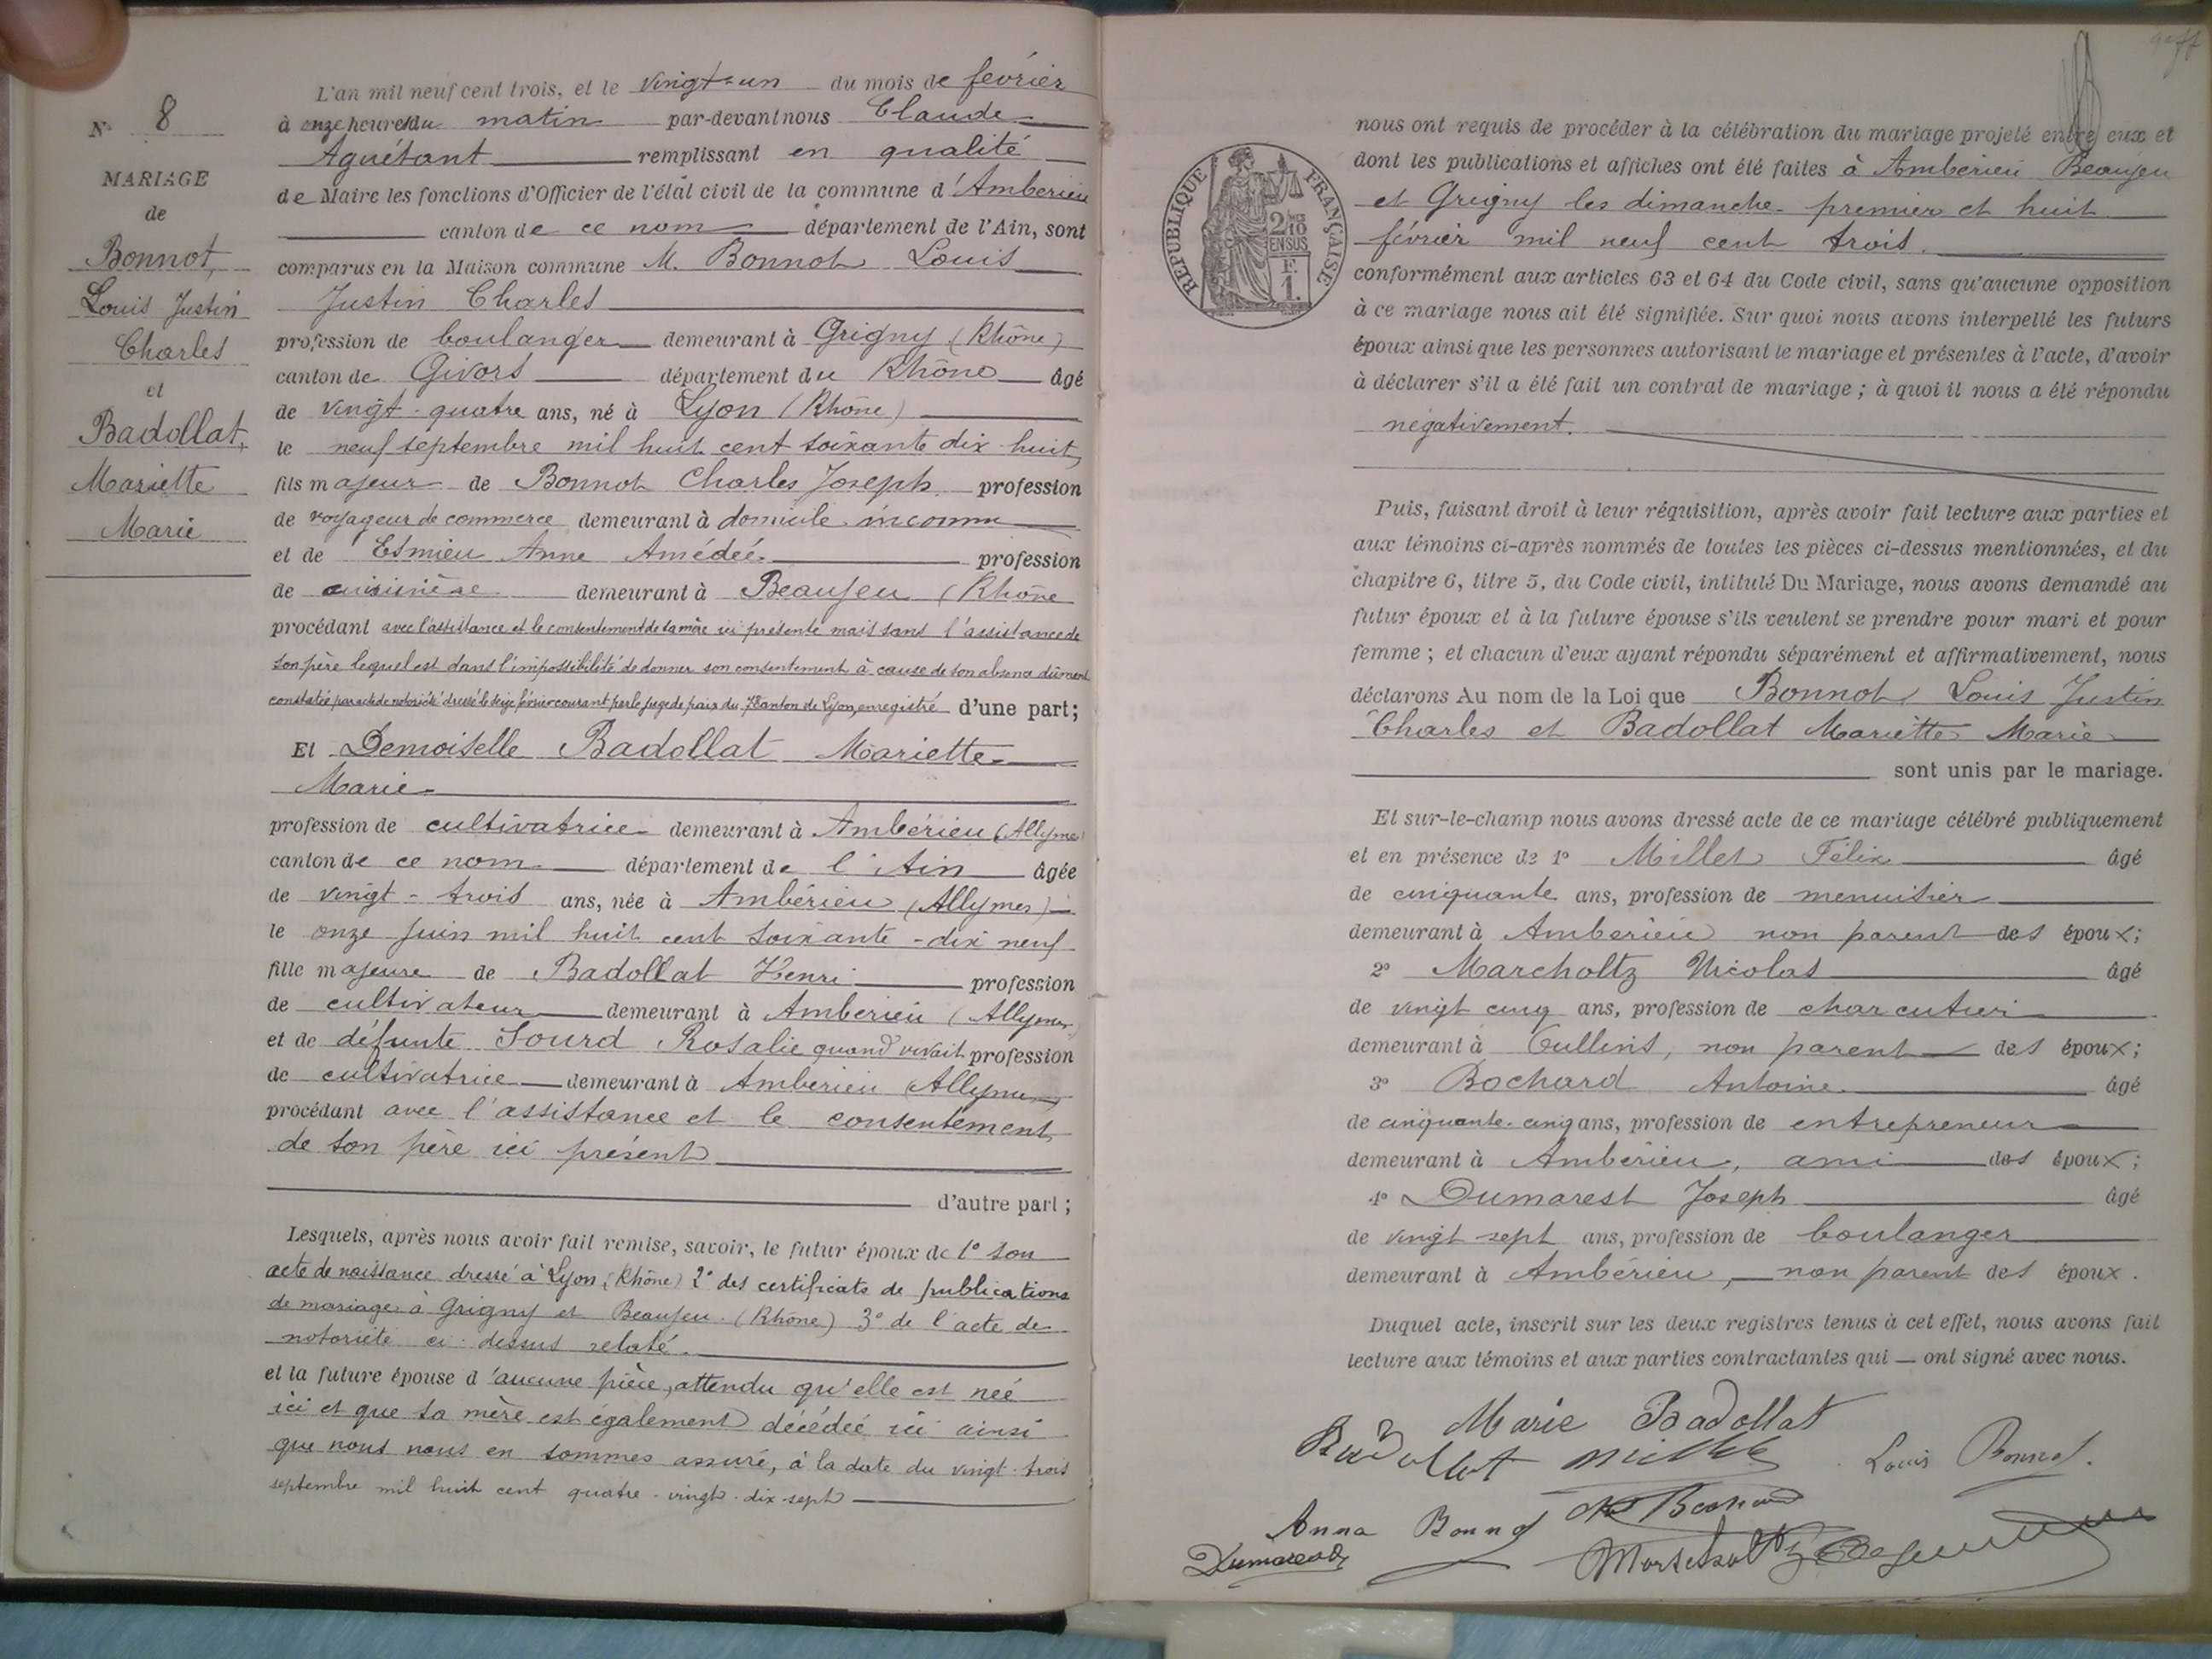 N° 8
MARIAGE
de
Bonnot,
Louis Justin
Charles
et
Badollat,
Mariette
Marie
L'an mil neuf cent trois, et le vingt-un du mois de février
à onze heures du matin par-devant nous Claude
Aguétant remplissant en qualité
de Maire les fonctions d'Officier de l'état civil de la commune d'Ambérieu
canton de ce nom département de l'Ain, sont
comparus en la Maison commune M. Bonnot Louis
Justin Charles
profession de boulanger demeurant à Grigny (Rhône)
canton de Givors département du Rhône âgé
de vingt-quatre ans, né à Lyon (Rhône)
le neuf septembre mil huit cent soixante dix-huit,
fils majeur de Bonnot Charles Joseph profession
de voyageur de commerce demeurant à domicile inconnu
et de Esmieu Anne Amédeé profession
de cuisinière demeurant à Beaujeu (Rhône
procédant avec l'assistance et le consentement de sa mère ici présente mais sans l'assistance de
son père lequel est dans l'impossibilité de donner son consentement à cause de son absence dûment
constatée par acte de notoriété dressé le seize février courant par le juge de paix du canton de Lyon, enregistré d'une part;
Et Demoiselle Badollat Mariette
Marie
profession de cultivatrice demeurant à Ambérieu (Allymes)
canton de ce nom département de l'Ain âgée
de vingt-trois ans, née à Ambérieu (Allymes)
le onze juin mil huit cent soixante-dix neuf
fille majeure de Badollat Henri profession
de cultivateur demeurant à Ambérieu (Allymes)
et de défunte Sourd Rosalie quand vivait profession
de cultivatrice demeurant à Ambérieu (Allymes)
procédant avec l'assistance et le consentement
de son père ici présent
d'autre part;
Lesquels, après nous avoir fait remise, savoir, le futur époux de 1° son
acte de naissance dressé à Lyon, (Rhône) 2° des certificats de publications
de mariage à Grigny et Beaujeu (Rhône) 3° de l'acte de
notoriété ci-dessus relaté.
et la future épouse d'aucune pièce, attendu qu'elle est neé
ici et que sa mère est également décédeé ici ainsi
que nous nous en sommes assuré, à la date du vingt-trois
septembre mil huit cent quatre-vingt-dix-sept
RÉPUBLIQUE FRANÇAISE
2/10
EN SUS
F.
1.
nous ont requis de procéder à la célébration du mariage projeté entre eux et
dont les publications et affiches ont été faites à Ambérieu Beaujeu
et Grigny les dimanche premier et huit
février mil neuf cent trois.
conformément aux articles 63 et 64 du Code civil, sans qu'aucune opposition
à ce mariage nous ait été signifiée. Sur quoi nous avons interpellé les futurs
époux ainsi que les personnes autorisant le mariage et présentes à l'acte, d'avoir
à déclarer s'il a été fait un contrat de mariage; à quoi il nous a été répondu
négativement.
Puis, faisant droit à leur réquisition, après avoir fait lecture aux parties et
aux témoins ci-après nommés de toutes les pièces ci-dessus mentionnées, et du
chapitre 6, titre 5, du Code civil, intitulé Du Mariage, nous avons demandé au
futur époux et à la future épouse s'ils veulent se prendre pour mari et pour
femme; et chacun d'eux ayant répondu séparément et affirmativement, nous
déclarons Au nom de la Loi que Bonnot Louis Justin
Charles et Badollat Mariette Marie
sont unis par le mariage.
Et sur-le-champ nous avons dressé acte de ce mariage célébré publiquement
et en présence de 1° Millet Félix âgé
de cinquante ans, profession de menuisier
demeurant à Ambérieu non parent des époux;
2° Marcholtz Nicolas âgé
de vingt cinq ans, profession de charcutier
demeurant à Oullins, non parent des époux;
3° Bochard Antoine âgé
de cinquante-cinq ans, profession de entrepreneur
demeurant à Ambérieu, ami des époux;
4° Dumarest Joseph âgé
de vingt sept ans, profession de boulanger
demeurant à Ambérieu, non parent des époux.
Duquel acte, inscrit sur les deux registres tenus à cet effet, nous avons fait
lecture aux témoins et aux parties contractantes qui — ont signé avec nous.
Marie Badollat
Badollat Millet Louis Bonnot.
Anna Bonnot Bochard
Dumarest